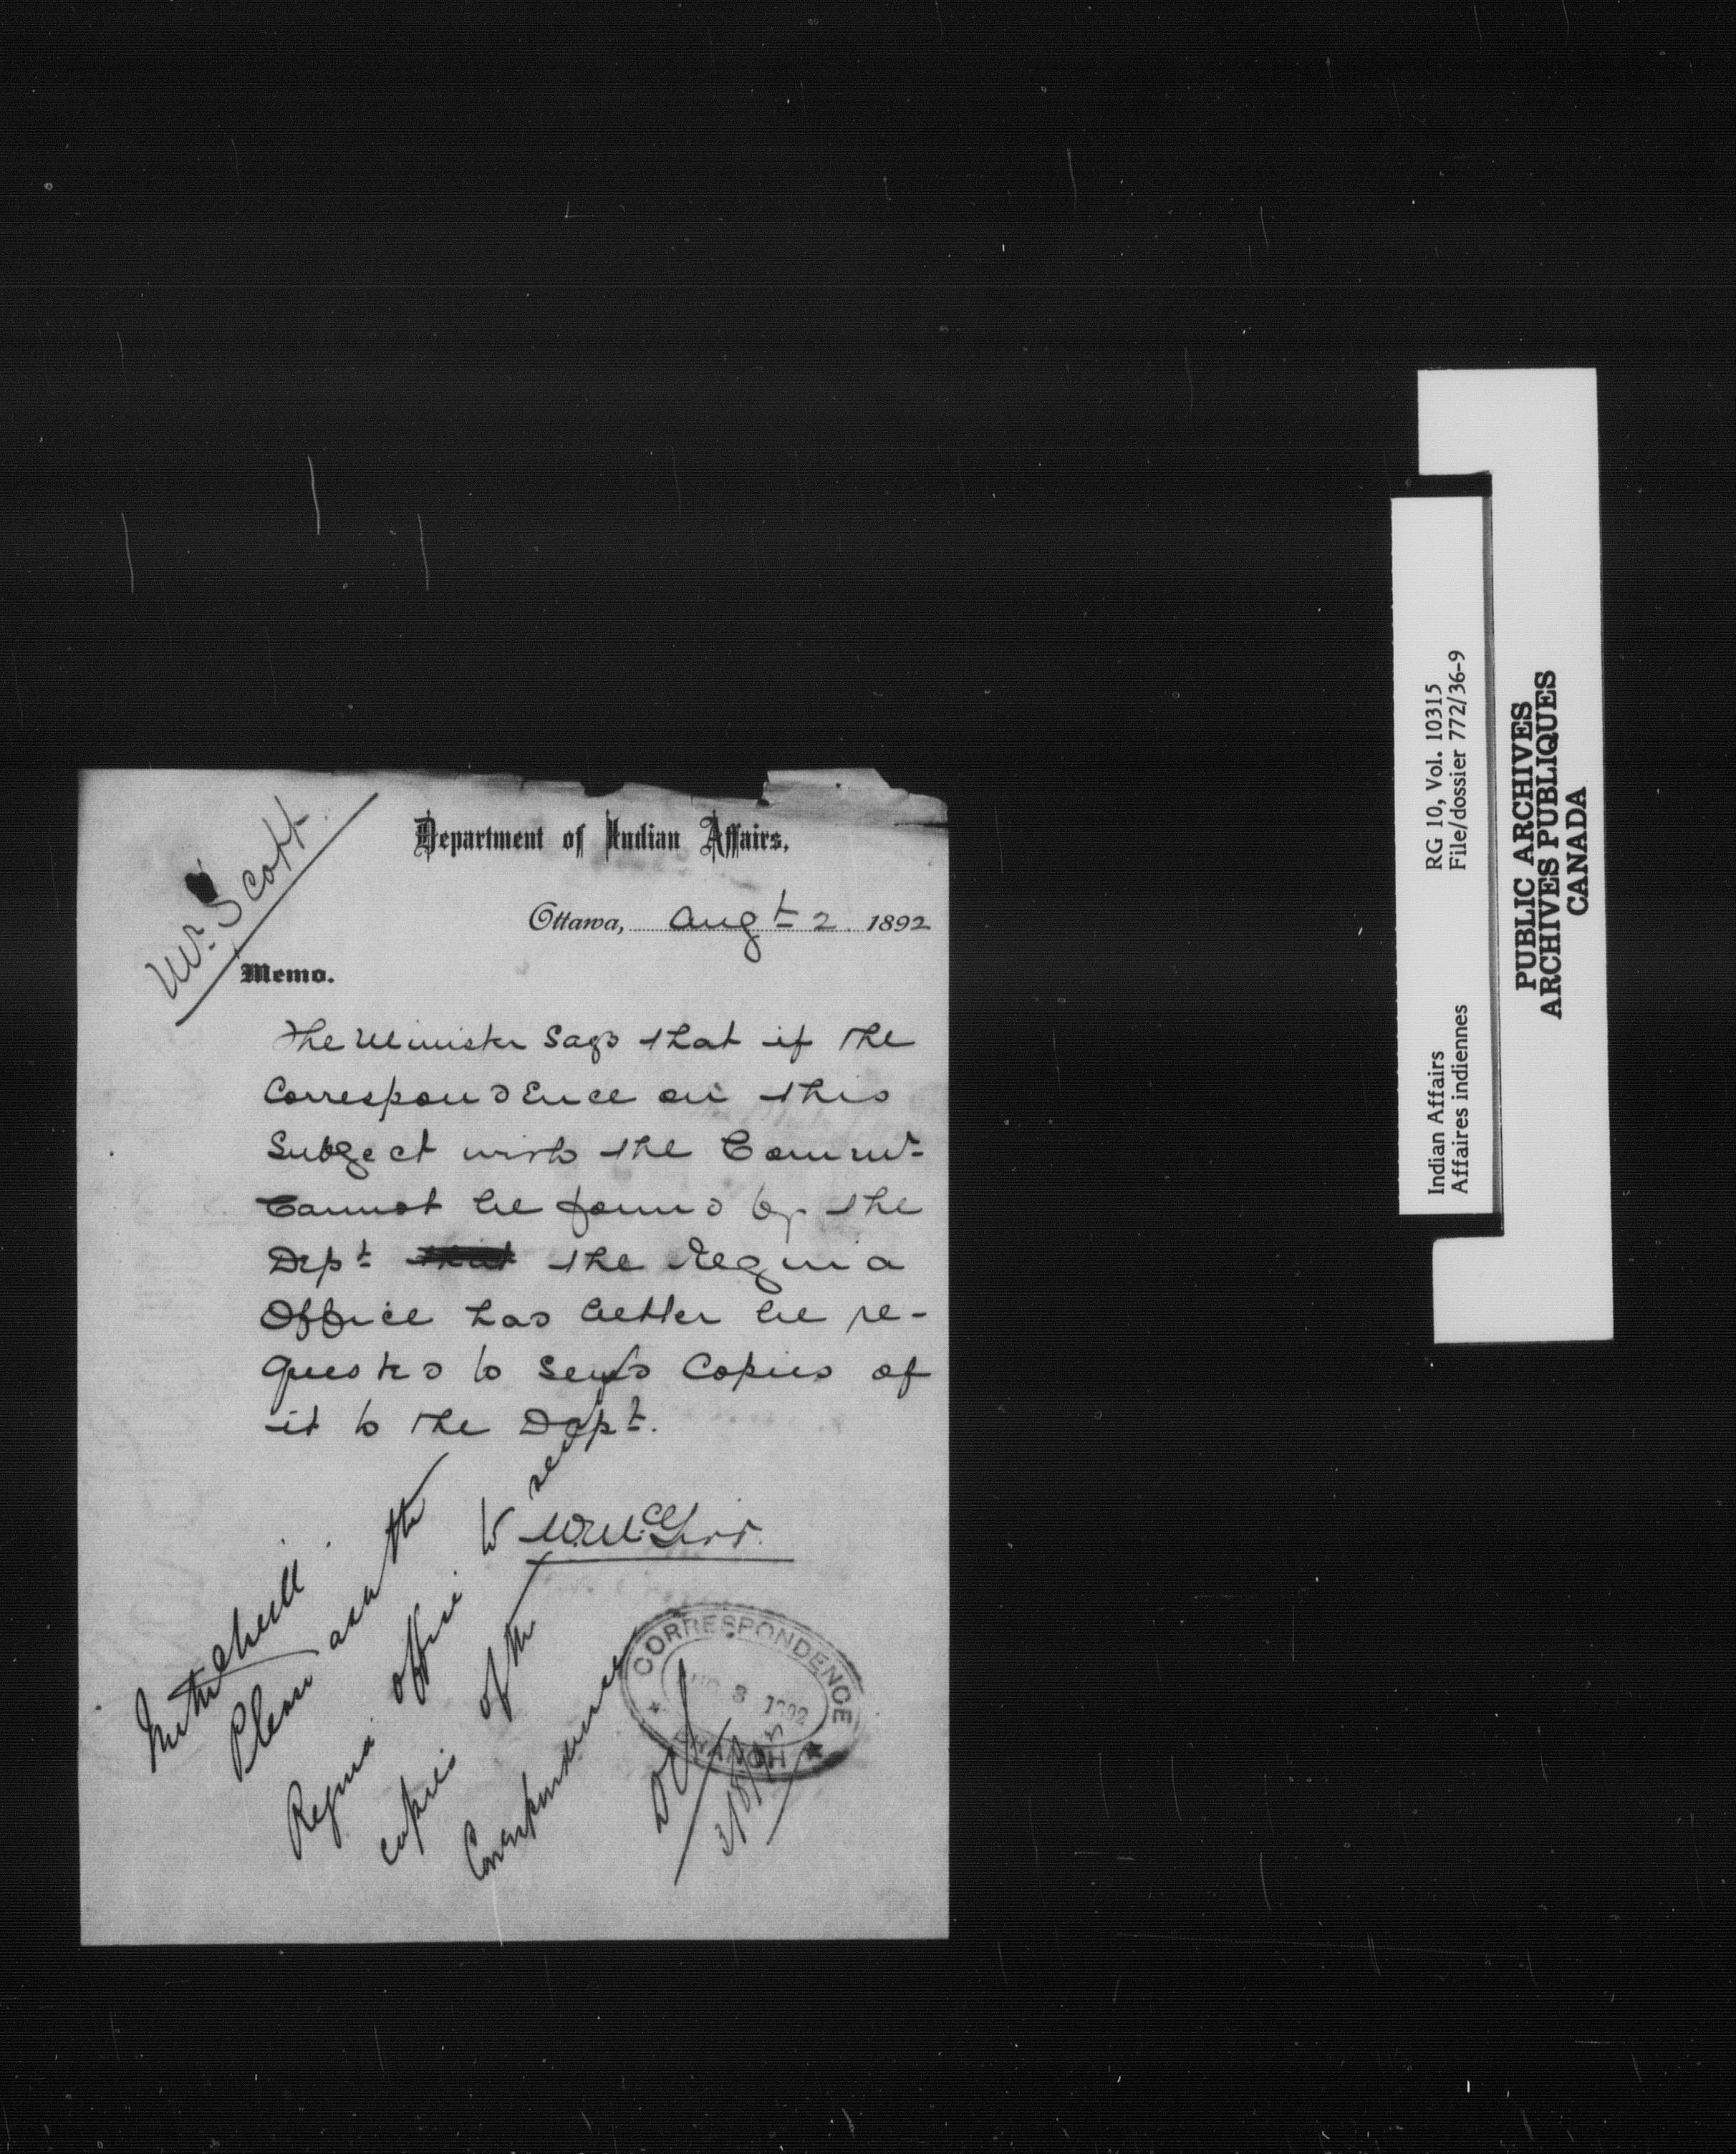 Mr. Scott.
Department of Indian Affairs,
Ottawa, Augt 2. 1892
Memo.
The Minister says that if the
Correspondence on this
Subject with the Commr.
Cannot be found by the
Dept that the Regina
Office has better be re-
quested to send Copies of
it to the Dept.
W. McGirr.
Mitchell
Please ask the
Regina office to send
copies of the
Correspondence
DCS
3/8/92
CORRESPONDENCE
3 1892
BRANCH
Indian Affairs
Affaires indiennes
RG 10, Vol. 10315
File/dossier 772/36-9
PUBLIC ARCHIVES
ARCHIVES PUBLIQUES
CANADA